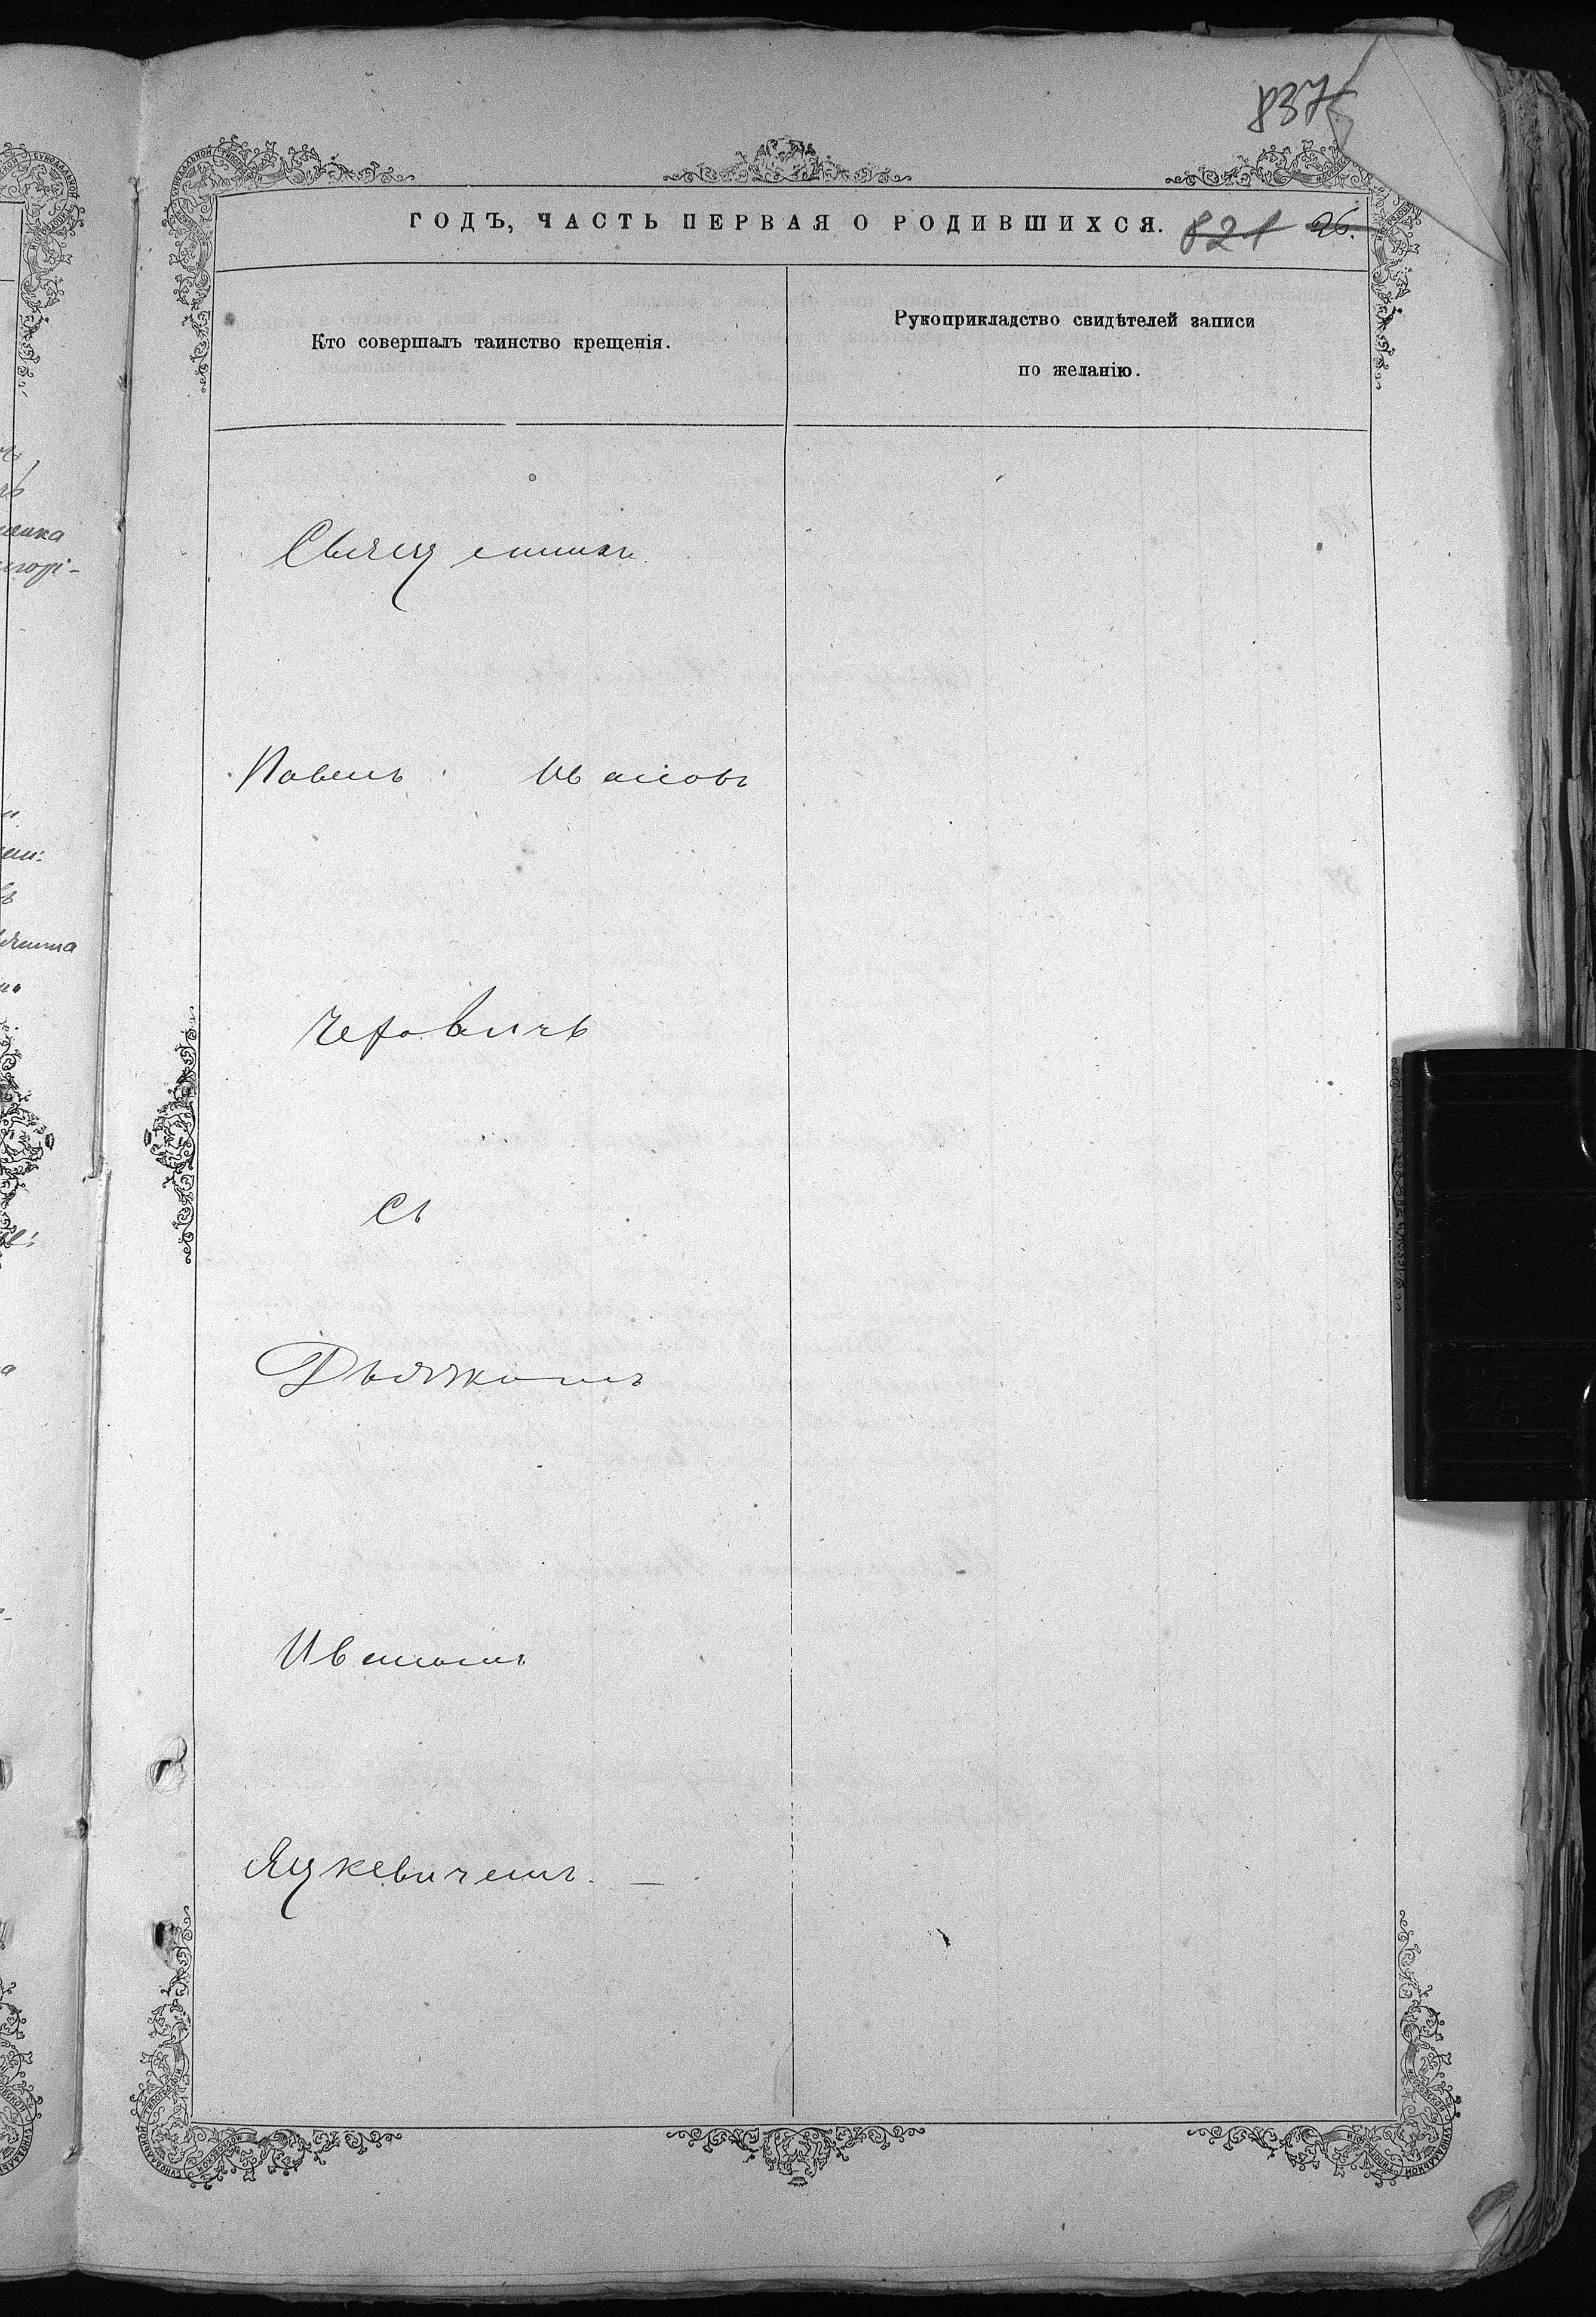 837
ГОДЪ, ЧАСТЬ ПЕРВАЯ О РОДИВШИХСЯ. 821 26.
Кто совершалъ таинство крещенія.
Рукоприкладство свидѣтелей записи
по желанію.
Священникъ
Павелъ Ивановъ
Чеховичъ
Съ
Дьячкомъ
Иваномъ
Яцкевичемъ. —